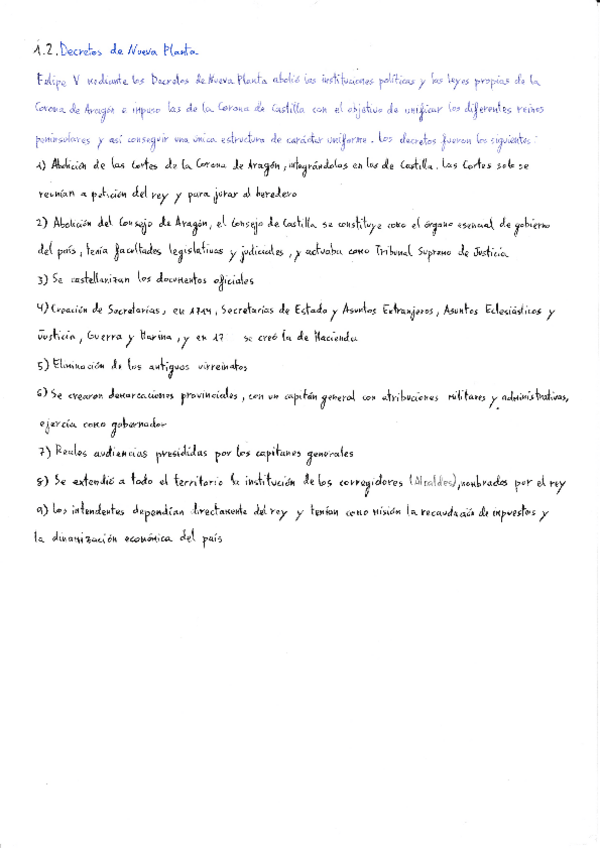 1.2. Decretos de Nueva Planta.
Felipe V mediante los Decretos de Nueva Planta abolió las instituciones políticas y las leyes propias de la
Corona de Aragón e impuso las de la Corona de Castilla con el objetivo de unificar los diferentes reinos
peninsulares y así conseguir una única estructura de carácter uniforme. Los decretos fueron los siguientes:
1) Abolición de las Cortes de la Corona de Aragón, integrándolas en las de Castilla. Las Cortes solo se
reunían a petición del rey y para jurar al heredero
2) Abolición del Consejo de Aragón, el Consejo de Castilla se constituye como el órgano esencial de gobierno
del país, tenía facultades legislativas y judiciales, y actuaba como Tribunal Supremo de Justicia
3) Se castellanizan los documentos oficiales
4) Creación de Secretarías, en 1714, Secretarías de Estado y Asuntos Extranjeros, Asuntos Eclesiásticos y
Justicia, Guerra y Marina, y en 17 se creó la de Hacienda
5) Eliminación de los antiguos virreinatos
6) Se crearon demarcaciones provinciales, con un capitán general con atribuciones militares y administrativas,
ejercía como gobernador
7) Reales audiencias presididas por los capitanes generales
8) Se extendió a todo el territorio la institución de los corregidores (Alcaldes), nombrados por el rey
9) Los intendentes dependían directamente del rey y tenían como misión la recaudación de impuestos y
la dinamización económica del país